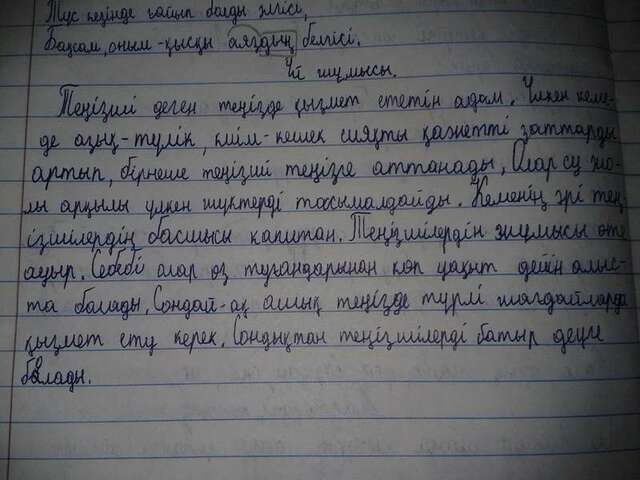 Түс кезінде ғайып болды әлгісі,
Бақсам, оным - қысқы аяздың белгісі.
Үй жұмысы.
Теңізші деген теңізде қызмет ететін адам. Үлкен кеме-
де азық-түлік, киім-кешек сияқты қажетті заттарды
артып, бірнеше теңізші теңізге аттанады. Олар су жо-
лы арқылы үлкен жүктерді тасымалдайды. Кеменің әрі тең
ізшілердің басшысы капитан. Теңізшілердін жұмысы өте
ауыр. Себебі олар өз туғандарынан көп уақыт дейін алыс-
та болады. Сондай-ақ ашық теңізде түрлі жағдайларда
қызмет ету керек. Сондықтан теңізшілерді батыр деуге
болады.